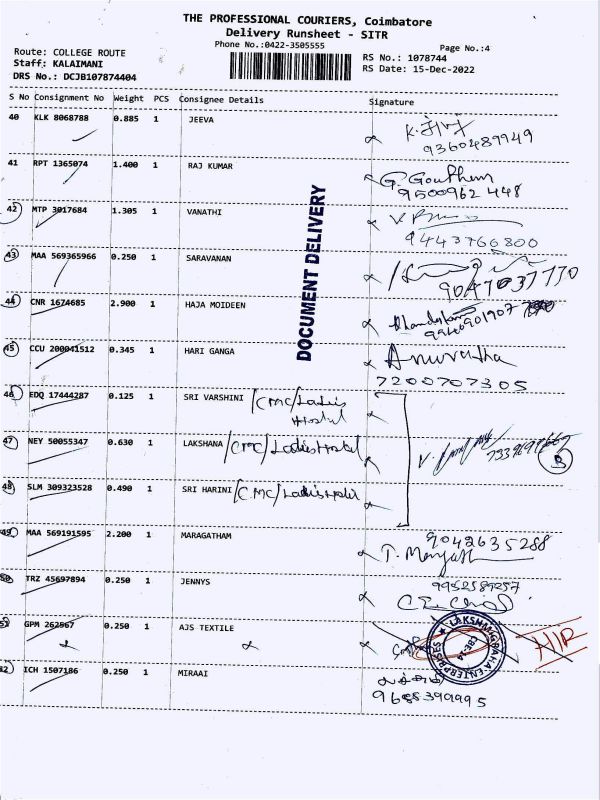 THE PROFESSIONAL COURIERS, Coimbatore
Delivery Runsheet - SITR
Phone No.:0422-3505555
Page No.:4
Route: COLLEGE ROUTE
Staff: KALAIMANI
DRS No.: DCJB107874404
RS No.: 1078744
RS Date: 15-Dec-2022
S No Consignment No Weight PCS Consignee Details Signature
40 KLK 8068788 0.885 1 JEEVA
9360489949
41 RPT 1365074 1.400 1 RAJ KUMAR
G. Gouthem
9500962448
42 MTP 3017684 1.305 1 VANATHI
9443766800
43 MAA 569365966 0.250 1 SARAVANAN
9047037770
44 CNR 1674685 2.900 1 HAJA MOIDEEN
45 CCU 200041512 0.345 1 HARI GANGA
Anuratha
7200707305
46 EDQ 17444287 0.125 1 SRI VARSHINI /CMC/Ladies
Hostel
47 NEY 50055347 0.630 1 LAKSHANA /CMC/Ladies Hostel
48 SLM 309323528 0.490 1 SRI HARINI /CMC/Ladies Hostel
49 MAA 569191595 2.200 1 MARAGATHAM
9042635288
50 TRZ 45697894 0.250 1 JENNYS
9952589257
GPM 262567 0.250 1 AJS TEXTILE
H/R
52 ICH 1507186 0.250 1 MIRAAI
DOCUMENT DELIVERY